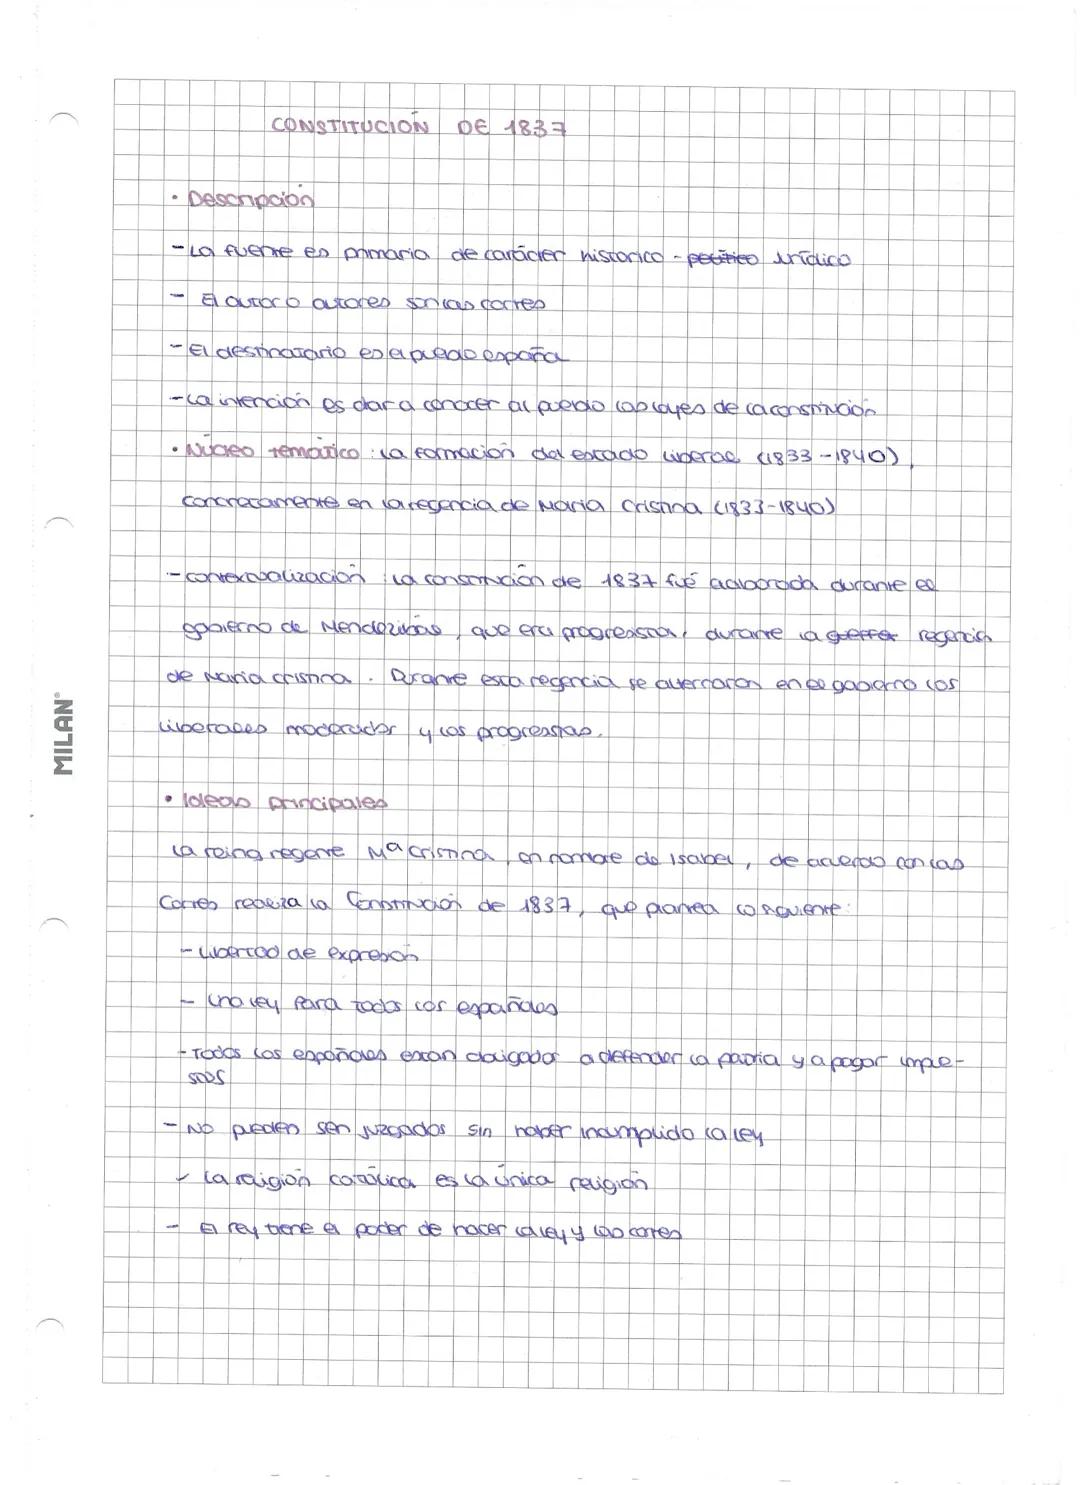 CONSTITUCIÓN DE 1837
• Descripción
- La fuente es primaria de carácter historico - político jurídico
- El autor o autores son las cortes
- El destinatario es el pueblo español
- La intención es dar a conocer al pueblo las leyes de la constitución
• Núcleo temático: la formación del estado liberal (1833-1840),
concretamente en la regencia de Maria Cristina (1833-1840)
- contextualización: la constitución de 1837 fué elaborada durante el
gobierno de Mendizábal, que era progresista, durante la guerra regencia
de Maria cristina. Durante esta regencia se alternaron en el gobierno los
liberales moderados y los progresistas.
MILAN®
• Ideas principales
La reina regente Mª Cristina, en nombre de Isabel, de acuerdo con las
Cortes realiza la Constitución de 1837, que plantea lo siguiente:
- libertad de expresión
- Una ley para todos los españoles
- Todos los españoles estan obligados a defender la patria y a pagar impue-
stos
- No pueden ser juzgados sin haber incumplido la ley
- La religión católica es la única religión
- El rey tiene el poder de hacer la ley y las cortes